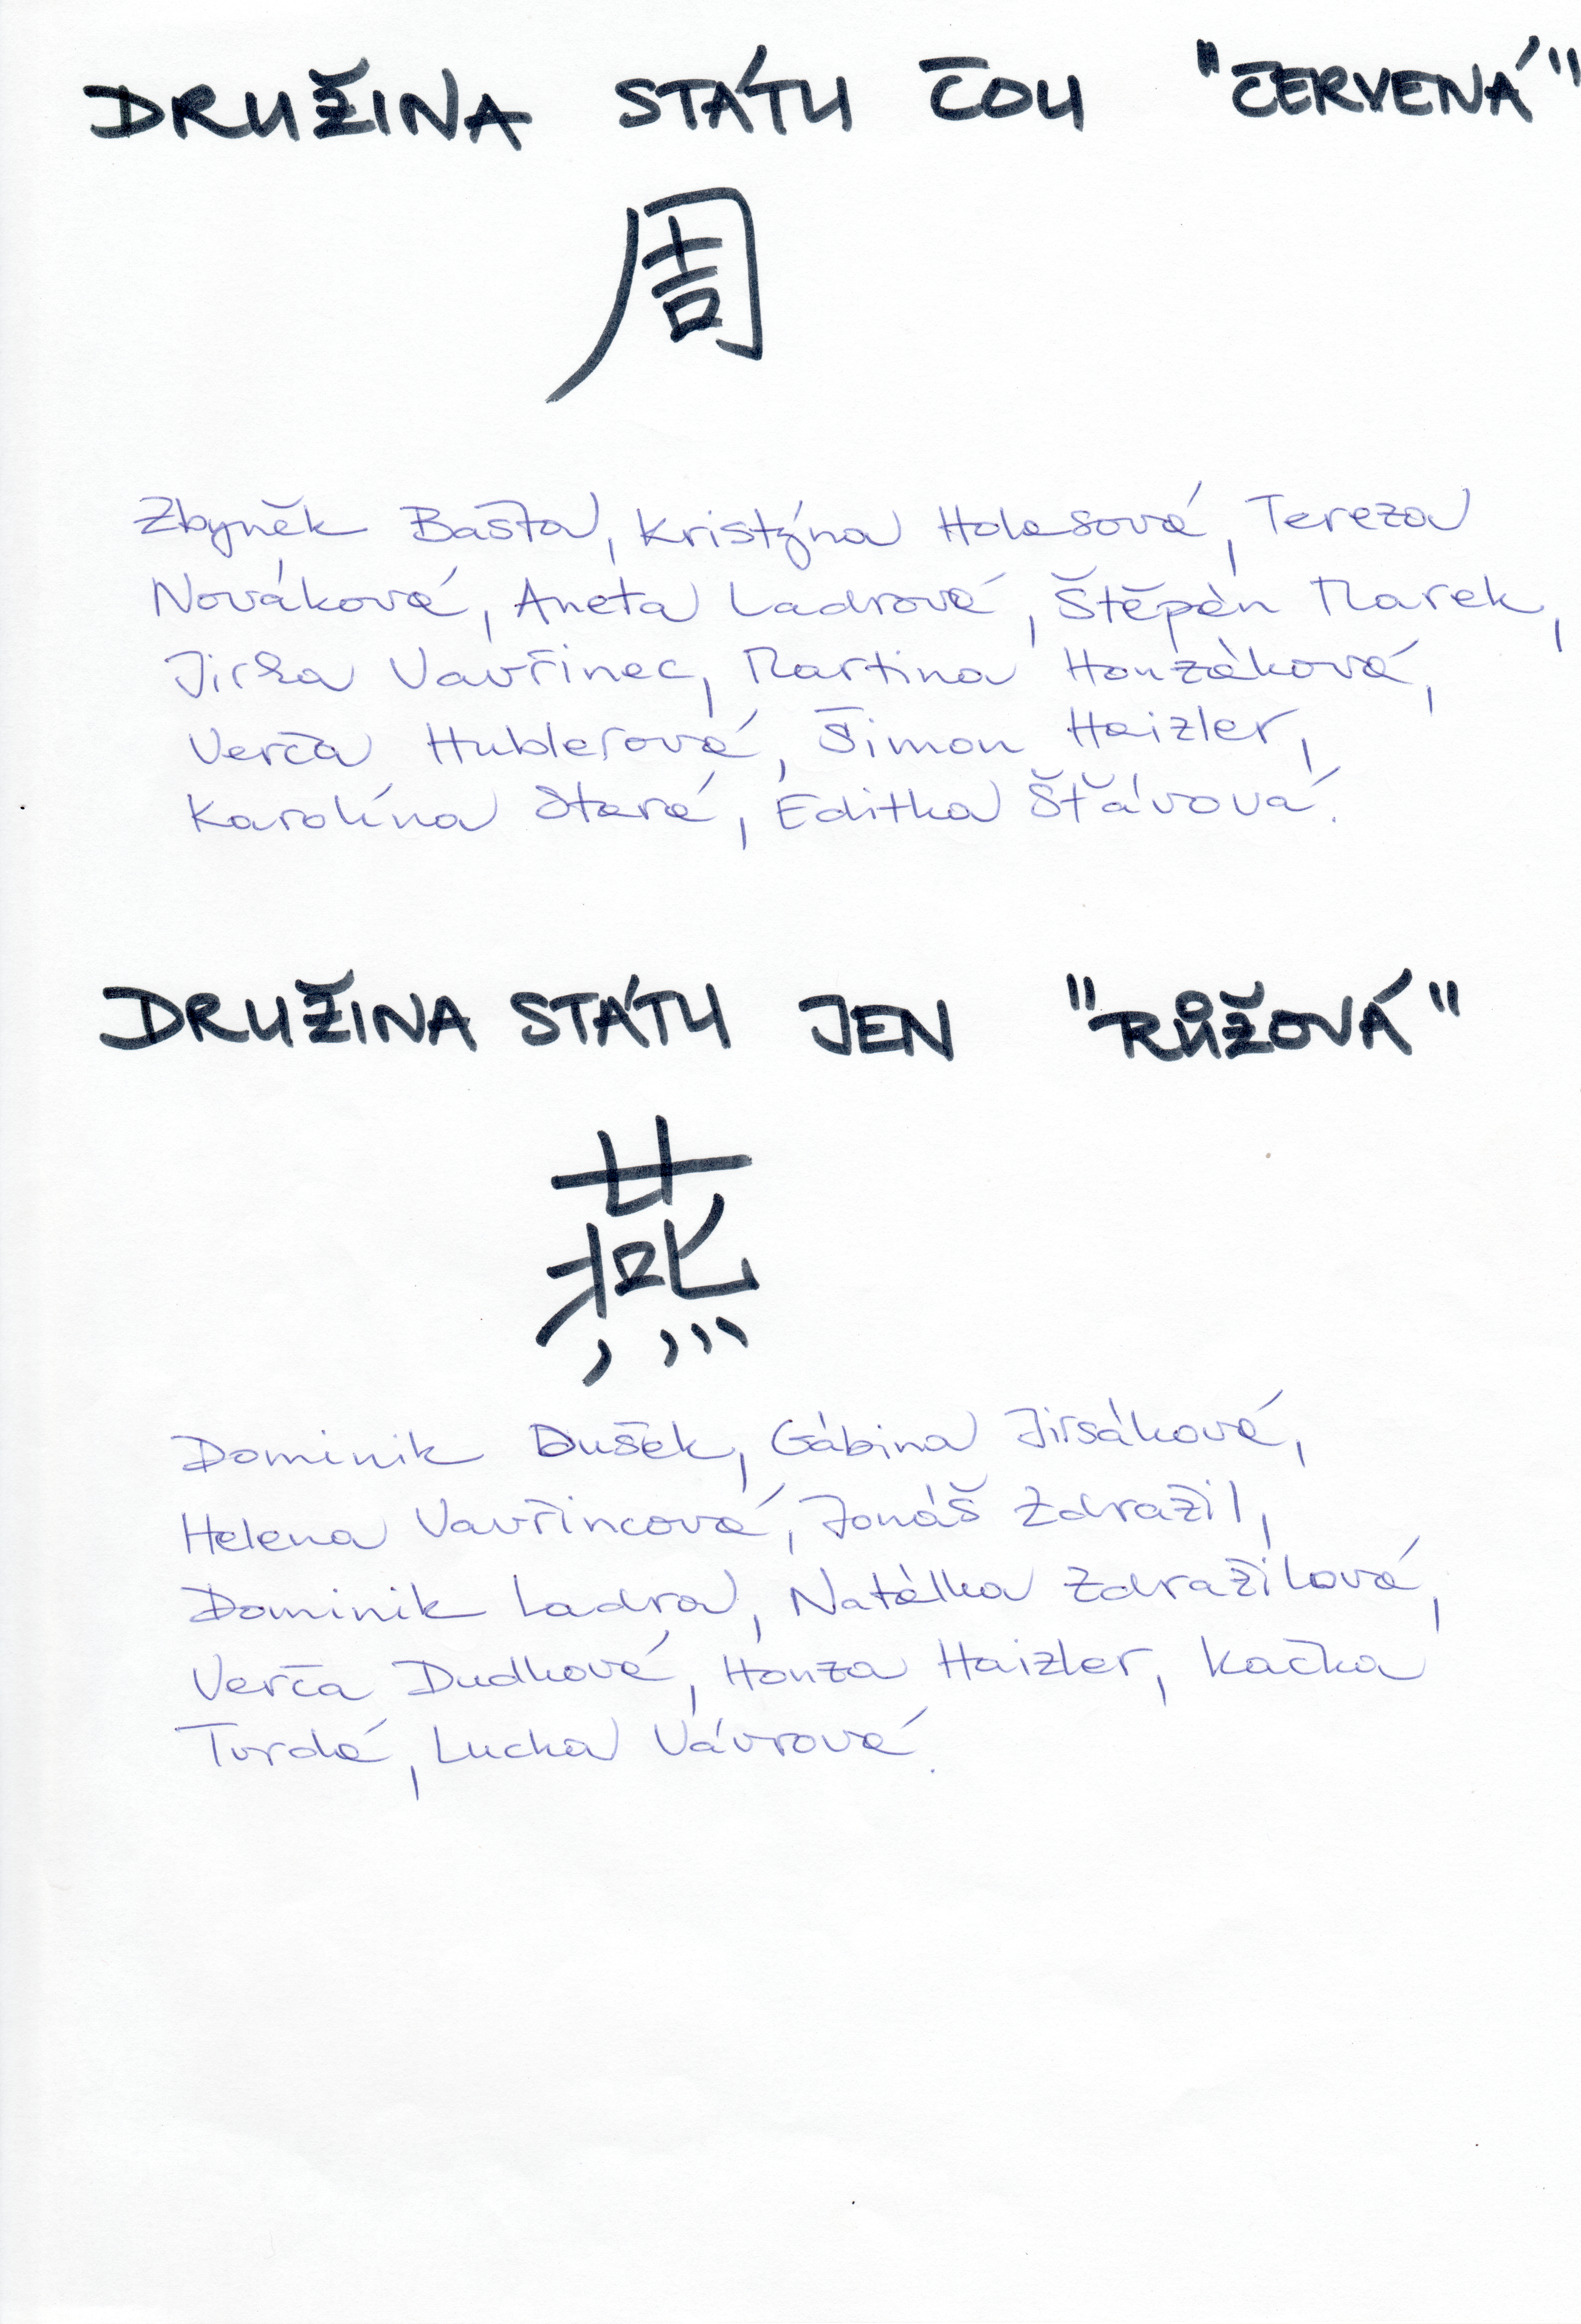 DRUŽINA STÁTU ČOU "ČERVENÁ"
周
Zbyněk Bašta, Kristýna Holasová, Tereza
Nováková, Aneta Ladrová, Štěpán Marek,
Jirka Vavřinec, Martina Honzáková,
Verča Hublerová, Šimon Haizler,
Karolína Stará, Editka Šťávová.
DRUŽINA STÁTU JEN "RŮŽOVÁ"
燕
Dominik Dušek, Gábina Jirsáková,
Helena Vavřincová, Jonáš Zdražil,
Dominik Ladra, Natálka Zdražilová,
Verča Dudková, Honza Haizler, Kačka
Tvrdá, Lucka Vávrová.